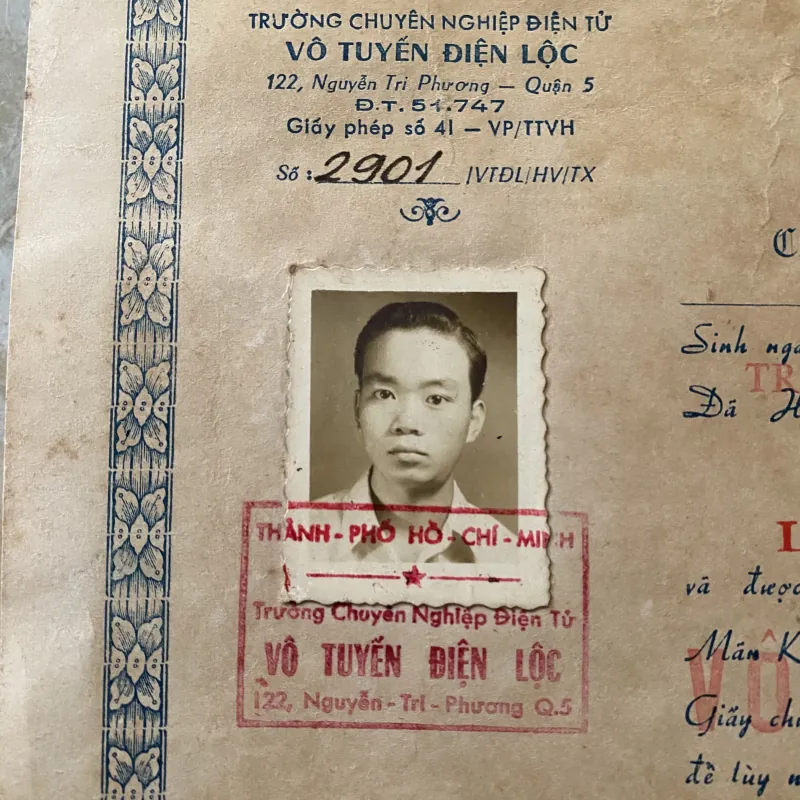 TRƯỜNG CHUYÊN NGHIỆP ĐIỆN TỬ
VÔ TUYẾN ĐIỆN LỘC
122, Nguyễn Tri Phương — Quận 5
Đ.T. 51.747
Giấy phép số 41 — VP/TTVH
Số : 2901 /VTĐL/HV/TX
C
Sinh ngà
TR
Đã H
THÀNH - PHỐ HỒ - CHÍ - MINH
Trường Chuyên Nghiệp Điện Tử
VÔ TUYẾN ĐIỆN LỘC
122, Nguyễn - Tri - Phương Q.5
L
và được
Mãn K
VÔ
Giấy ch
để tùy n